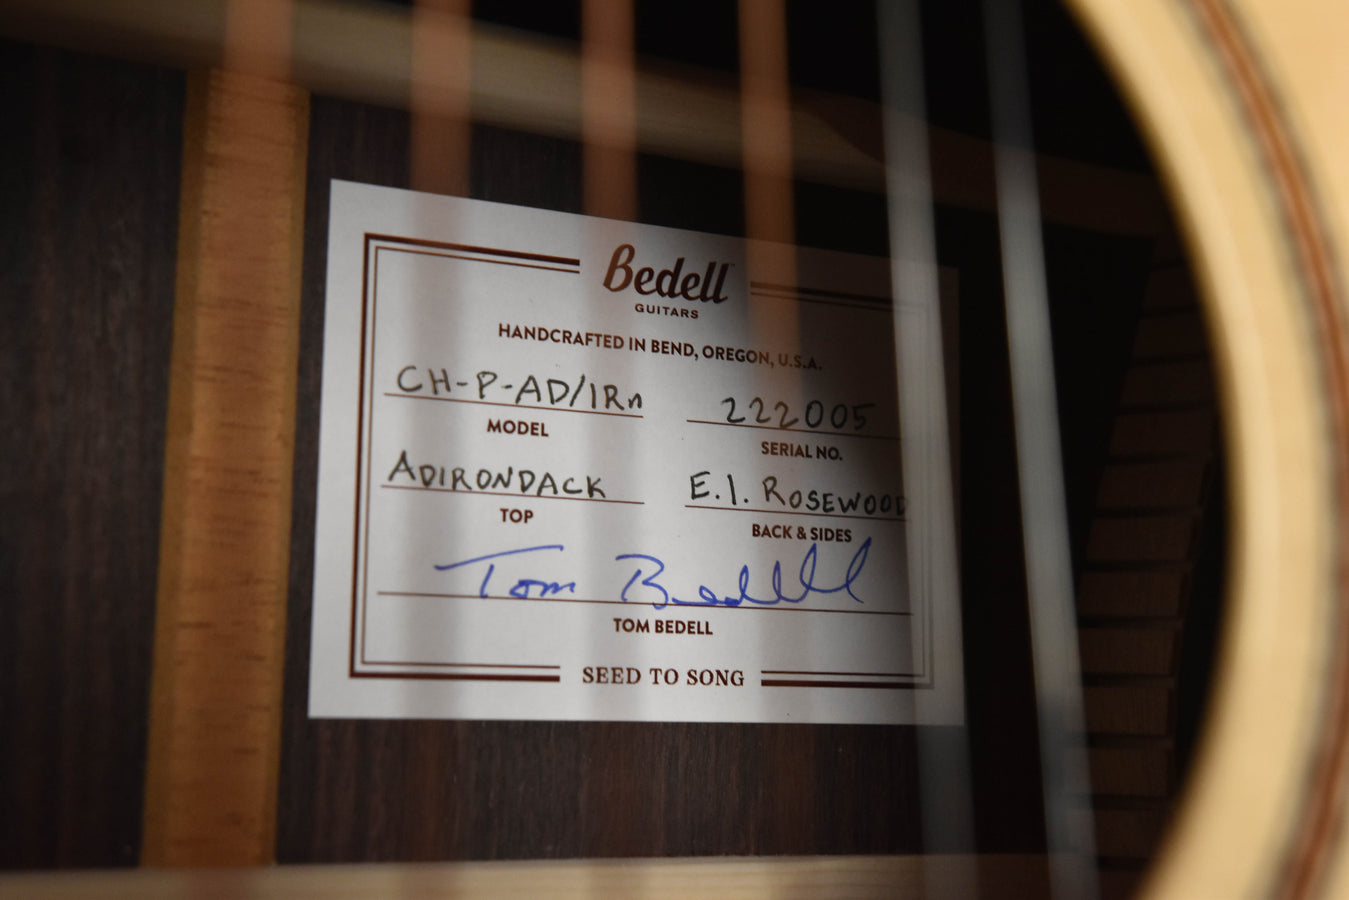 Bedell™
GUITARS
HANDCRAFTED IN BEND, OREGON, U.S.A.
CH-P-AD/IRn 222005
MODEL SERIAL NO.
ADIRONDACK E.I. ROSEWOOD
TOP BACK & SIDES
Tom Bedell
TOM BEDELL
SEED TO SONG